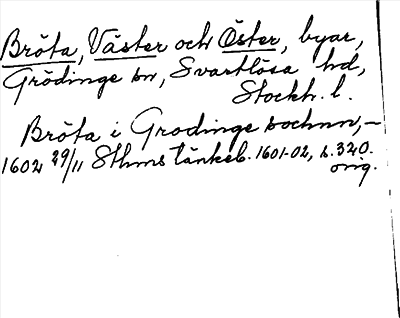 Bröta, Väster och Öster, byar,
Grödinge sn, Svartlösa hd,
Stockh. l.
Bröta i Grodinge sochnn,-
1602 29/11 Sthms tänkeb. 1601-02, s. 320.
orig.